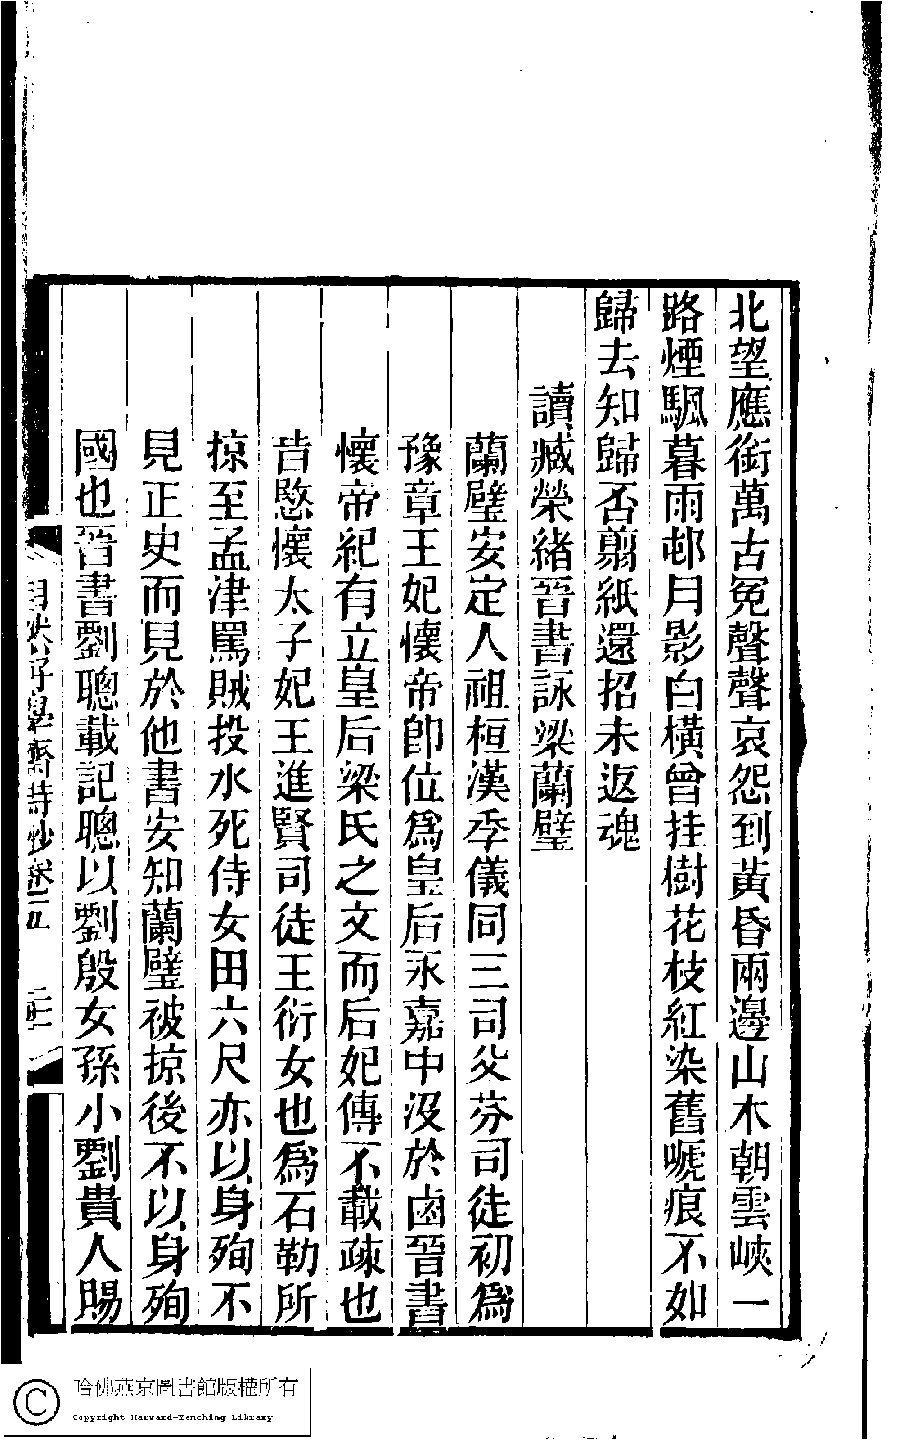 北望應銜萬古冤聲聲哀怨到黃昏兩邊山木朝雲峽一
路煙颿暮雨邨月影白橫曾挂樹花枝紅染舊嗁痕不如
歸去知歸否翦紙還招未返魂
讀臧榮緒晉書詠梁蘭璧
蘭璧安定人祖桓漢季儀同三司父芬司徒初爲
豫章王妃懷帝卽位爲皇后永嘉中沒於鹵晉書
懷帝紀有立皇后梁氏之文而后妃傳不載疎也
昔愍懷太子妃王進賢司徒王衍女也爲石勒所
掠至孟津罵賊投水死侍女田六尺亦以身殉不
見正史而見於他書安知蘭璧被掠後不以身殉
國也晉書劉聰載記聰以劉殷女孫小劉貴人賜
齋詩抄卷五
哈佛燕京圖書館版權所有
Copyright Harvard-Yenching Library